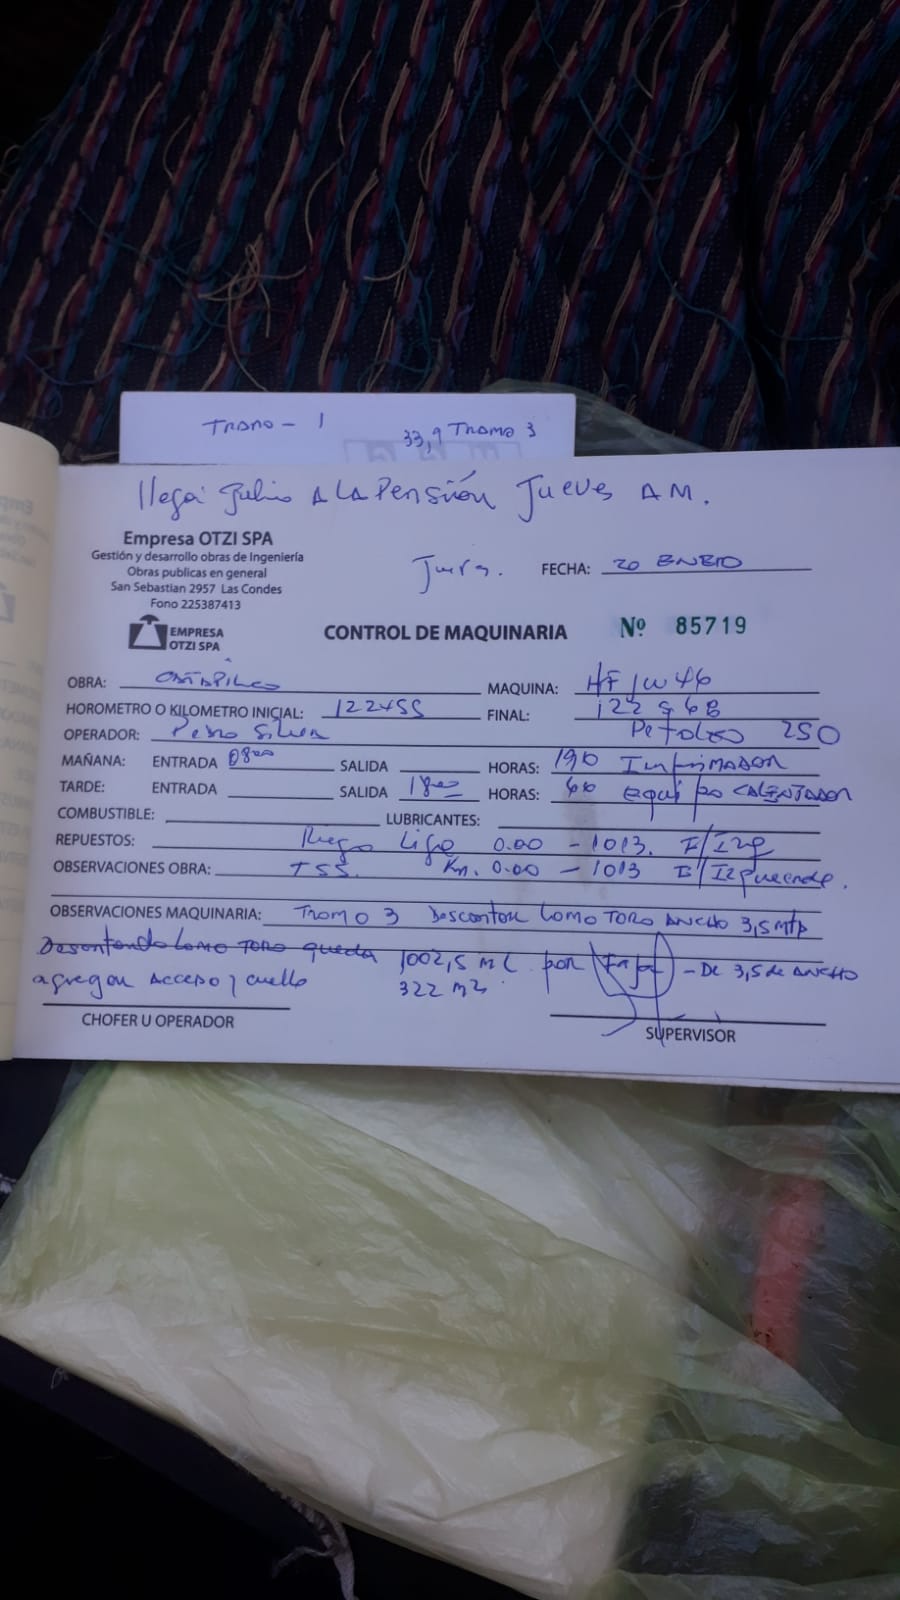 TRAMO - 1
33,9 TRAMO 3
llega Julio A LA Pensión Jueves AM.
Empresa OTZI SPA
Gestión y desarrollo obras de Ingeniería
Obras publicas en general
San Sebastian 2957 Las Condes
Fono 225387413
FECHA: 20 ENERO
EMPRESA
OTZI SPA
CONTROL DE MAQUINARIA
Nº 85719
OBRA:
MAQUINA: HFJW46
HOROMETRO O KILOMETRO INICIAL: 122455
FINAL:
OPERADOR: Pedro Silva
Petoleo 250
MAÑANA: ENTRADA 0800 SALIDA HORAS: 190 Imprimador
TARDE: ENTRADA SALIDA 1800 HORAS: 60 equipo CALENTADOR
COMBUSTIBLE: LUBRICANTES:
REPUESTOS: Riego Liga 0.00 - 1013. F/Izq
OBSERVACIONES OBRA: TSS. Km. 0.00 - 1013 F/Izquierda.
OBSERVACIONES MAQUINARIA: TRAMO 3 Descontar LOMO TORO ANCHO 3,5 mt
Descontando LOMO TORO queda 1002,5 ML por Faja - De 3,5 de ANCHO
agregar Acceso y cuello 322 M2
CHOFER U OPERADOR
SUPERVISOR